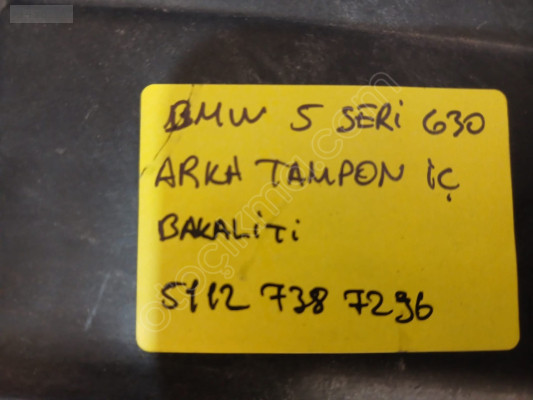 BMW 5 SERİ G30
ARKA TAMPON İÇ
BAKALİTİ
5112 738 7296